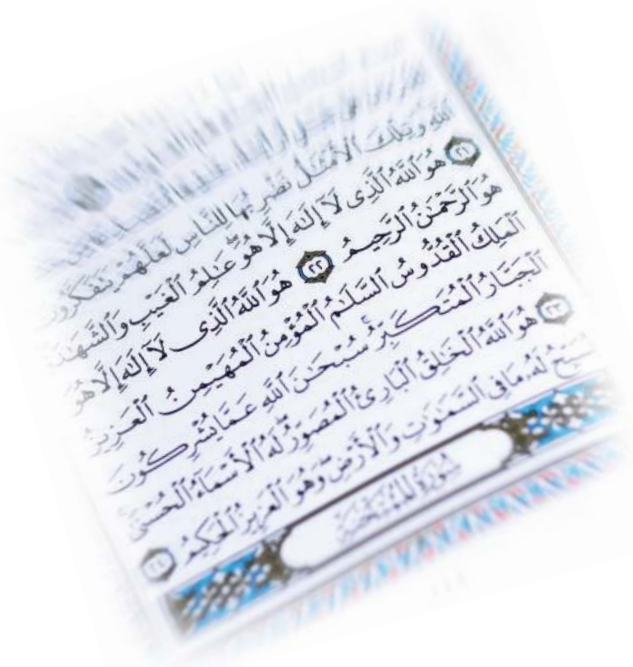 ٱللَّهِ وَتِلْكَ ٱلْأَمْثَـٰلُ نَضْرِبُهَا لِلنَّاسِ لَعَلَّهُمْ يَتَفَكَّرُونَ
٢١ هُوَ ٱللَّهُ ٱلَّذِى لَآ إِلَـٰهَ إِلَّا هُوَ عَـٰلِمُ ٱلْغَيْبِ وَٱلشَّهَـٰدَةِ
هُوَ ٱلرَّحْمَـٰنُ ٱلرَّحِيمُ ٢٢ هُوَ ٱللَّهُ ٱلَّذِى لَآ إِلَـٰهَ إِلَّا هُوَ
ٱلْمَلِكُ ٱلْقُدُّوسُ ٱلسَّلَـٰمُ ٱلْمُؤْمِنُ ٱلْمُهَيْمِنُ ٱلْعَزِيزُ
ٱلْجَبَّارُ ٱلْمُتَكَبِّرُ سُبْحَـٰنَ ٱللَّهِ عَمَّا يُشْرِكُونَ
٢٣ هُوَ ٱللَّهُ ٱلْخَـٰلِقُ ٱلْبَارِئُ ٱلْمُصَوِّرُ لَهُ ٱلْأَسْمَآءُ ٱلْحُسْنَىٰ
يُسَبِّحُ لَهُۥ مَا فِى ٱلسَّمَـٰوَٰتِ وَٱلْأَرْضِ وَهُوَ ٱلْعَزِيزُ ٱلْحَكِيمُ ٢٤
سُورَةُ ٱلْمُمْتَحَنَةِ